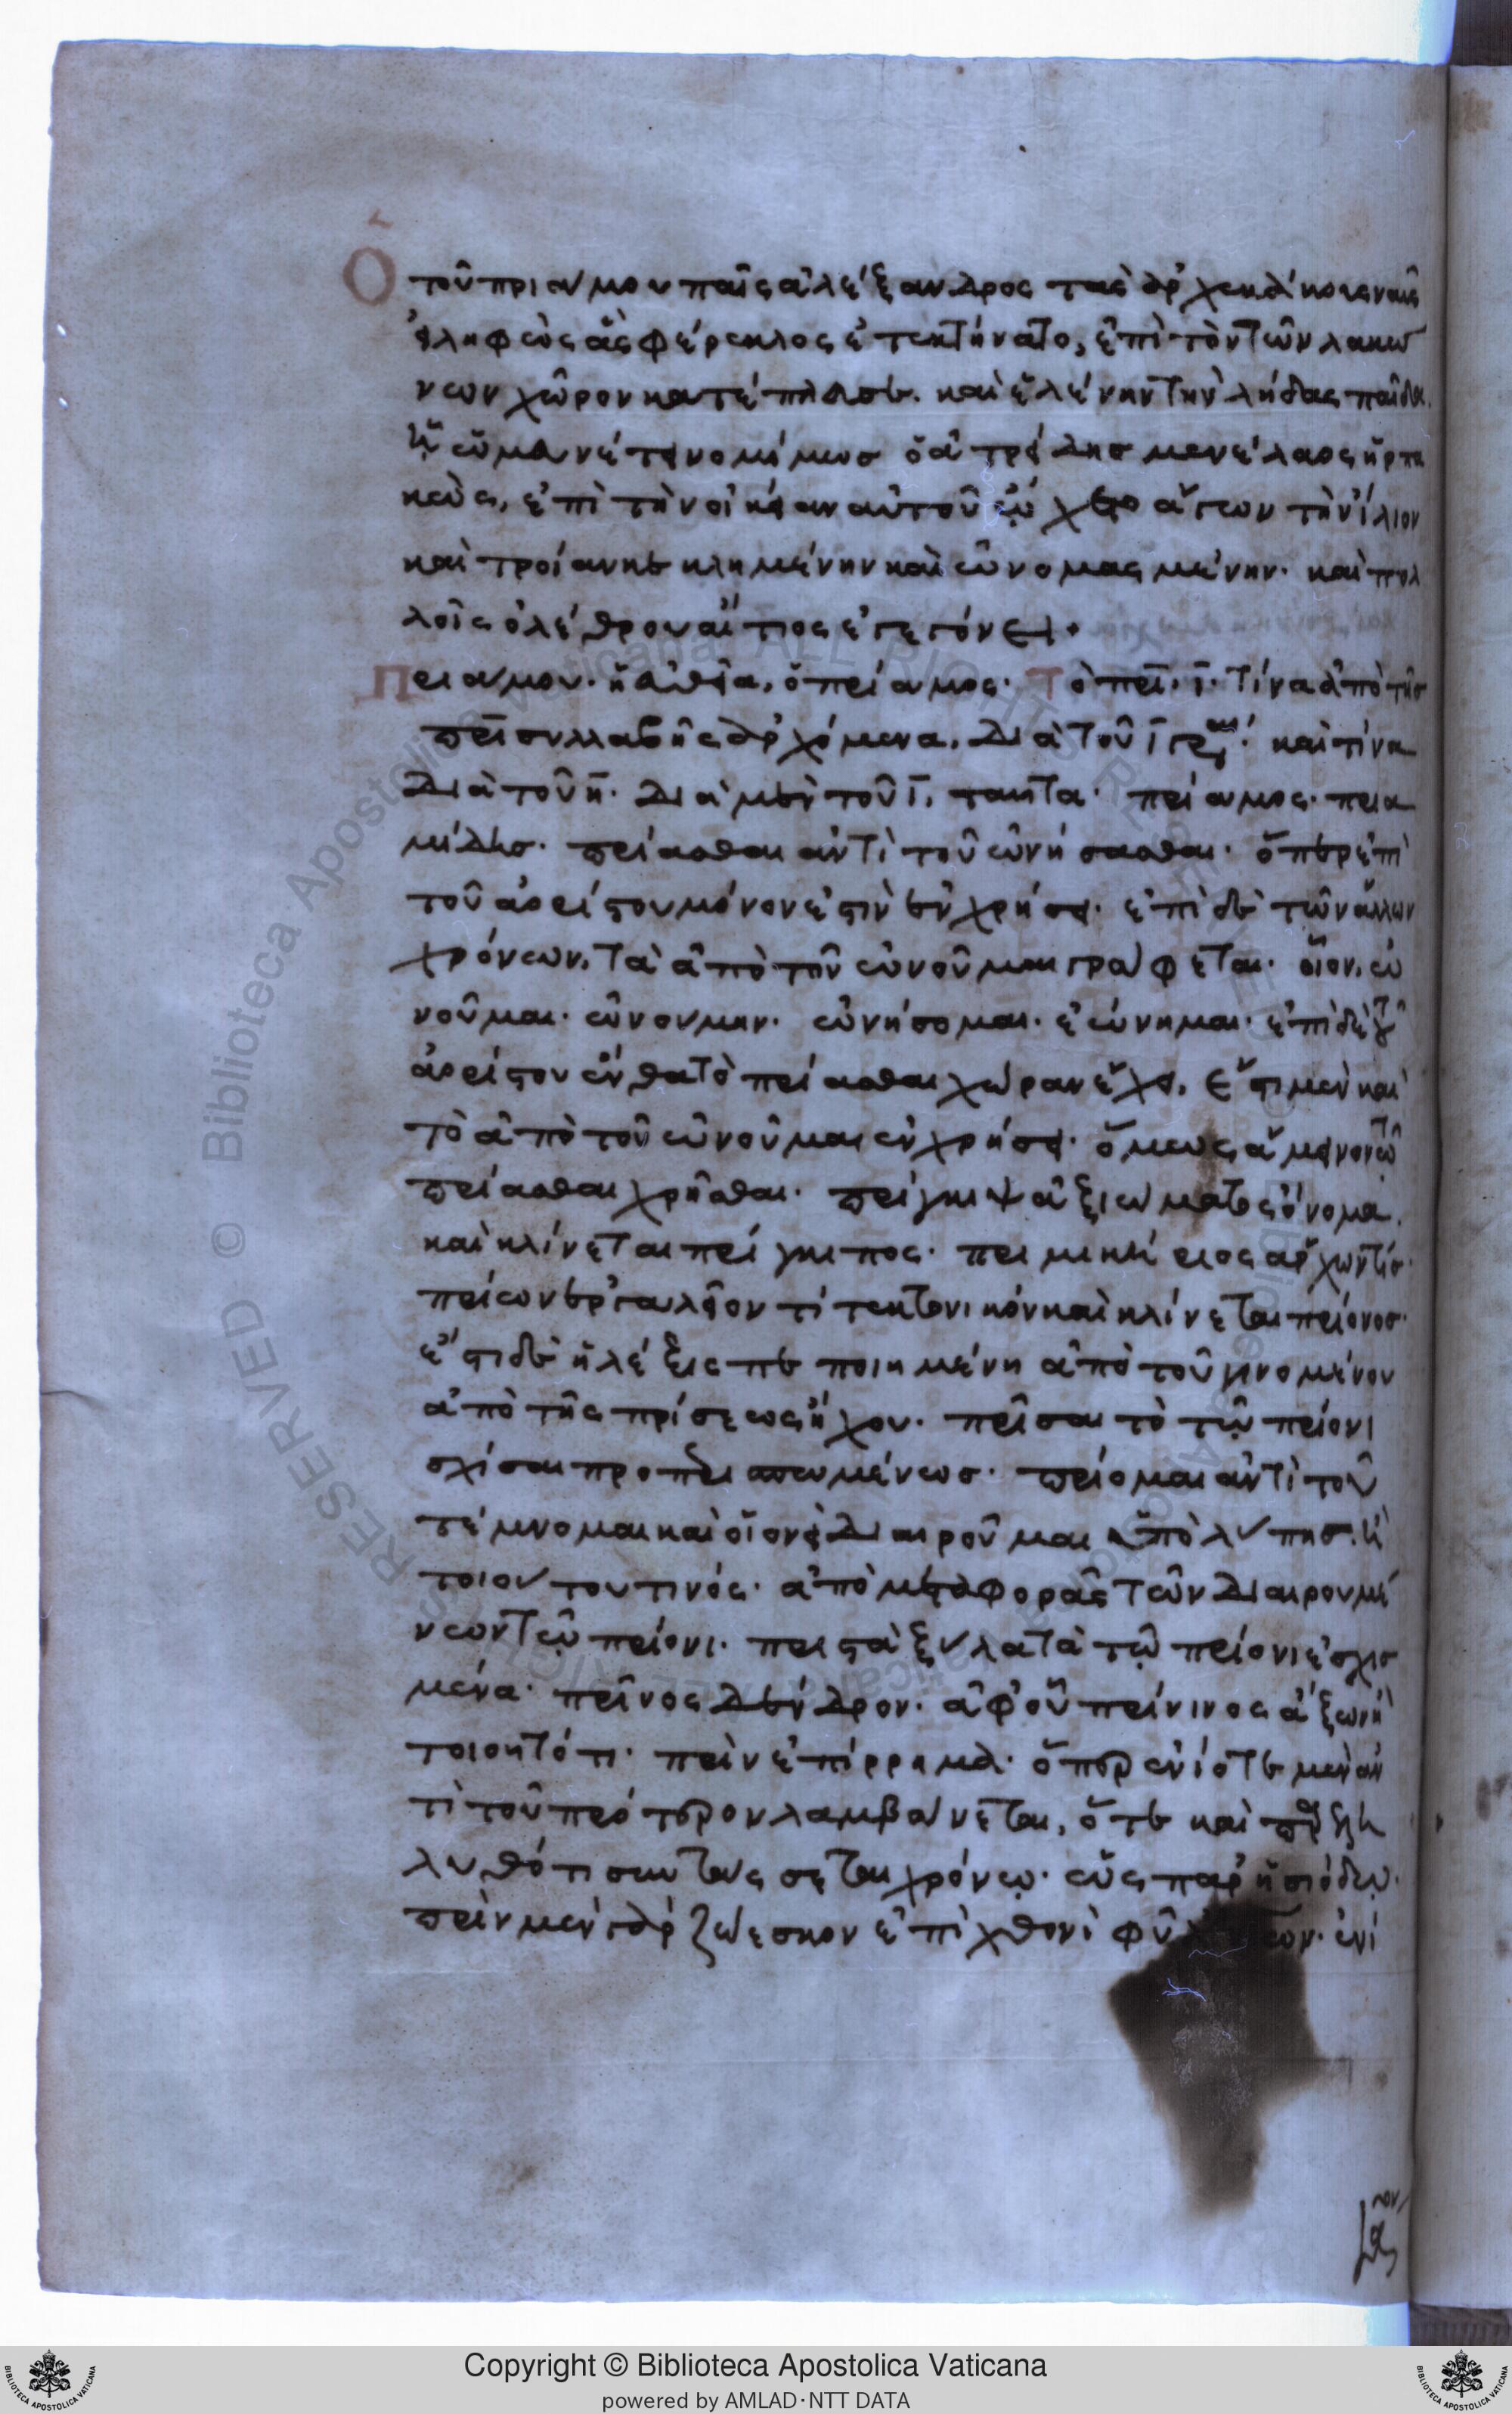 Ὁ τοῦ πριάμου παῖς ἀλέξανδρος τὰς ἀρχεκάκους ναῦς
εἰληφὼς ἃς φέρεκλος ἐτεκτήνατο, ἐπὶ τὸν τῶν λακώ
νων χῶρον κατέπλευσε. καὶ ἑλένην τὴν λήδας παῖδα.
ᾗ συμμανέτη νομίμως ὁ ἀτρείδης μενέλαος ἡρπα
κὼς, ἐπὶ τὴν οἰκείαν αὐτοῦ ᾤχετο ἄγων τὴν ἴλιον
καὶ τροίαν κεκλημένην καὶ ὠνομασμένην. καὶ πολ
λοῖς ὀλέθρου αἴτιος ἐγεγόνει.
Πριάμου. ἡ εὐθεῖα, ὁ πρίαμος. Τὸ πρι. ι. τίνα ἀπὸ τῆς
πρι συλλαβῆς ἀρχόμενα, διὰ τοῦ ι γράφεται. καὶ τίνα
διὰ τοῦ η. διὰ μὲν τοῦ ι, ταῦτα. πρίαμος. πρια
μίδης. πρίασθαι ἀντὶ τοῦ ὠνήσασθαι. ὅπερ ἐπὶ
τοῦ ἀορίστου μόνον ἐστὶν ἐν χρήσει. ἐπὶ δὲ τῶν ἄλλων
χρόνων, τὰ ἀπὸ τοῦ ὠνοῦμαι γράφεται. οἷον, ὠ
νοῦμαι. ὠνούμην. ὠνήσομαι. ἐώνημαι. ἐπὶ δὲ τοῦ
ἀορίστου ἔνθα τὸ πρίασθαι χώραν ἔχει, ἔστι μὲν καὶ
τὸ ἀπὸ τοῦ ὠνοῦμαι ἐν χρήσει. ὅμως ἄμεινον τῶ
πρίασθαι χρῆσθαι. πρίγκιψ ἀξιώματος ὄνομα.
καὶ κλίνεται πρίγκιπος. πριμικήριος ἄρχων τίς.
πρίων ἐργαλεῖον τὶ τεκτονικόν καὶ κλίνεται πρίονος.
ἔστι δὲ ἡ λέξις πεποιημένη ἀπὸ τοῦ γινομένου
ἀπὸ τῆς πρίσεως ἤχου. πρῖσαι τὸ τῷ πρίονι
σχίσαι προπερισπωμένως. πρίομαι ἀντὶ τοῦ
τέμνομαι καὶ οἱονεὶ διαιροῦμαι ὑπὸ λύπης. ἢ
τοιούτου τινός. ἀπὸ μεταφορᾶς τῶν διαιρουμέ
νων τῷ πρίονι. πριστὰ ξύλα τὰ τῷ πρίονι ἐσχισ
μένα. πρῖνος δένδρον. ἀφ' οὗ πρίνινος ἄξων ἢ
τοιοῦτό τι. πρὶν ἐπίρρημα. ὅπερ ἐνίοτε μὲν ἀν
τὶ τοῦ πρότερον λαμβάνεται, ὅτε καὶ παρελη
λυθότι συντάσσεται χρόνῳ. ὡς παρ' ἡσιόδῳ.
πρὶν μὲν γὰρ ζώεσκον ἐπὶ χθονὶ φῦλ' ων. ἐνί
Copyright © Biblioteca Apostolica Vaticana
powered by AMLAD·NTT DATA